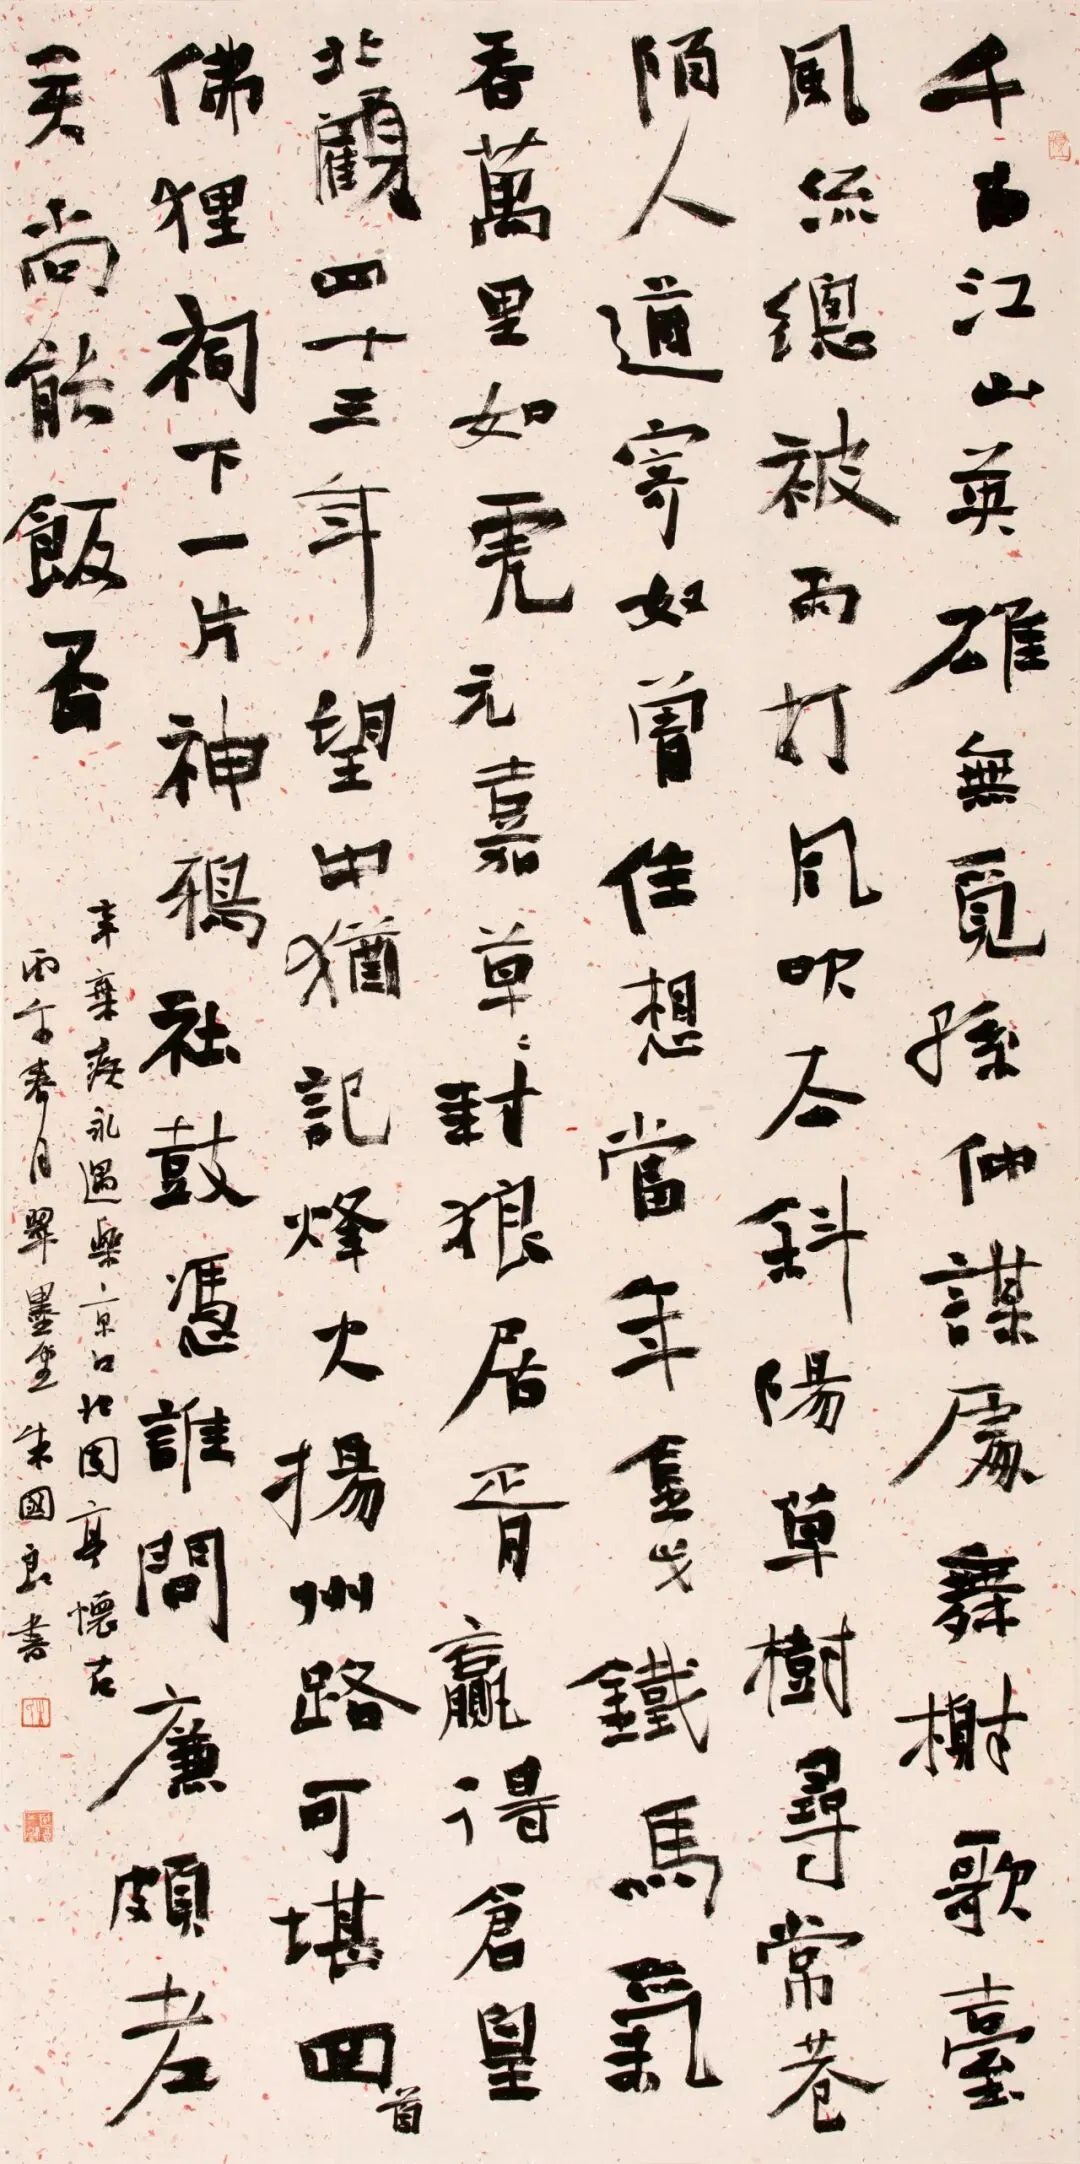 千古江山英雄無覓孫仲謀處舞榭歌臺
風流總被雨打風吹去斜陽草樹尋常巷
陌人道寄奴曾住想當年金戈鐵馬氣
吞萬里如虎元嘉草〻封狼居胥贏得倉皇
北顧四十三年望中猶記烽火揚州路可堪回首
佛狸祠下一片神鴉社鼓憑誰問廉頗老
矣尚能飯否
辛棄疾永遇樂京口北固亭懷古
丙午春月翠墨堂朱國良書